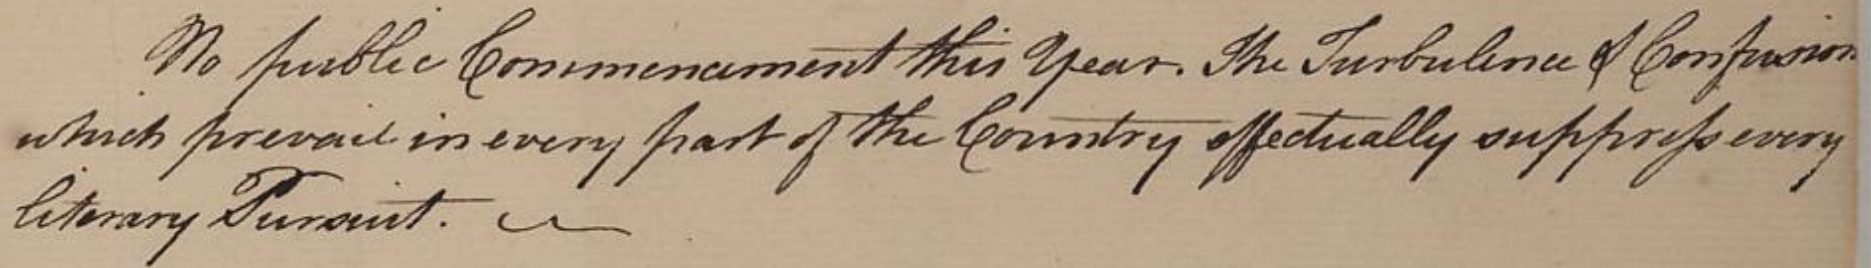 No public Commencement this Year. The Turbulence & Confusion
which prevail in every part of the Country effectually suppress every
literary Pursuit.